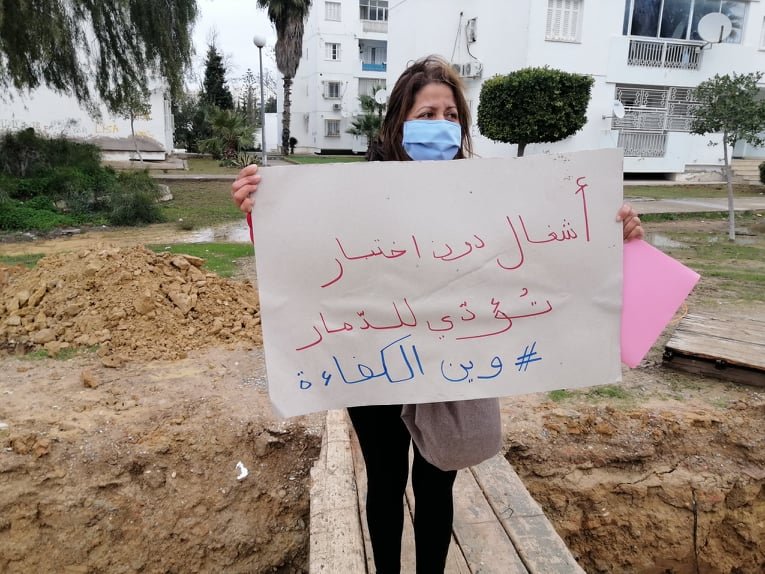 أشغال دون اختسار
تُؤدّي للدّمار
#وين الكفاءة